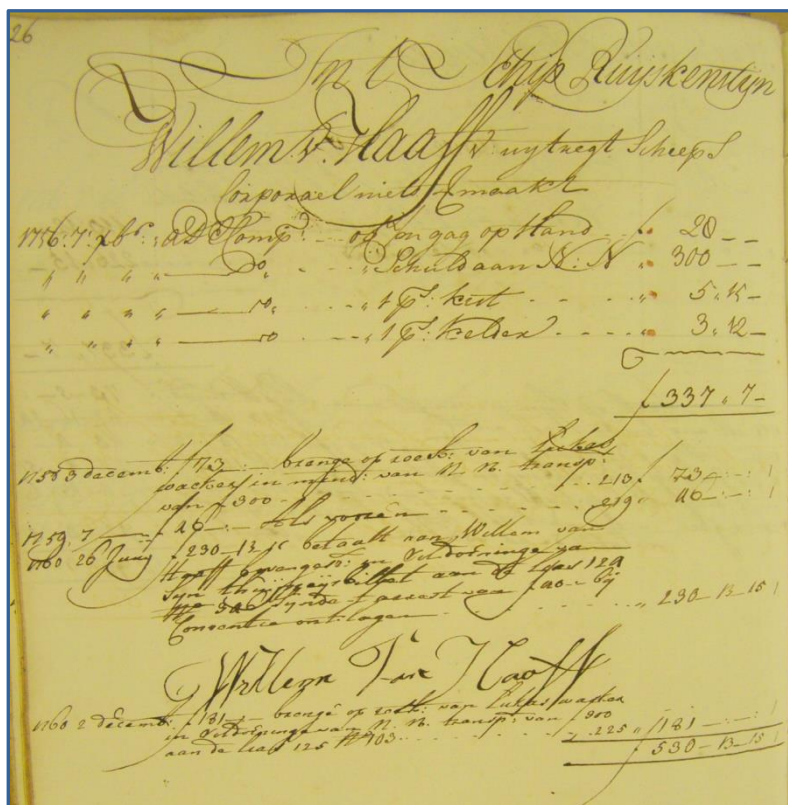 26
In t Schip Ruijskensteyn
Willem V: Haaff v: uytregt Scheeps
Corporael niets Gemaakt
1756: 7: xbr: a D Comp: op gag op Hand f 28 – –
" " " " do " Schuld aan N: N " 300 – –
" " " " do " 1 ps: kist " 5 " 15 –
" " " " do " 1 ps: kelder " 3 " 12 –
f 337 " 7 –
1758 3 decemb: f 73 brenge op reek: van
wacker in mind: van N N. transp:
van f 300 210 f 73
1759. 7 f 40 als vooren 219 40
1760 26 Junij f 230-13 betaalt aan Willem van
Haaff in Voldoeninge van
syn aan de Caas 129
van f 40 bij
Consentie ontslagen " 230 – 13 – 15
Willem Van Haaff
1760 2 decemb: f 181 brenge op reek: van Lukas
in Voldoeninge van N. N. transp: van f 300
aan de Caas 125 No 103 225 " 181
f 530 – 13 – 15